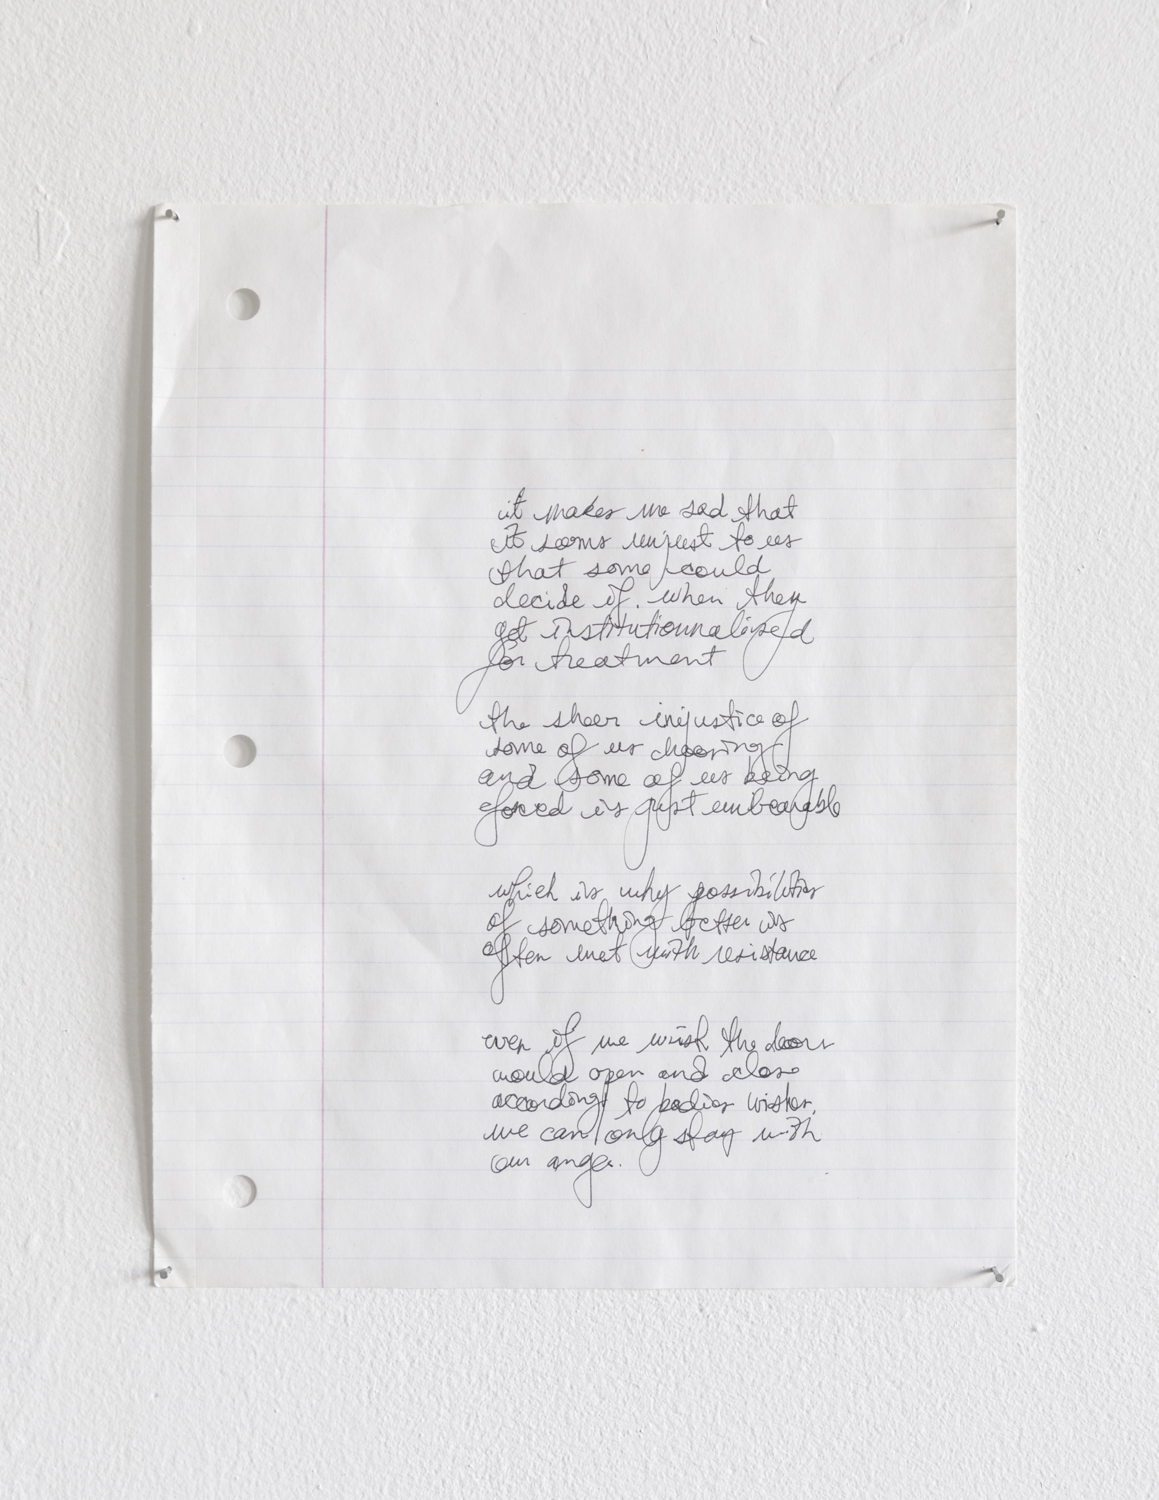 it makes me sad that
it seems unjust to us
that some could
decide if. when they
get institutionnalized
for treatment
the sheer injustice of
some of us choosing
and some of us being
forced is just unbearable
which is why possibilities
of something better is
often met with resistance
even if we wish the doors
would open and close
according to bodies wishes,
we can only stay with
our anger.